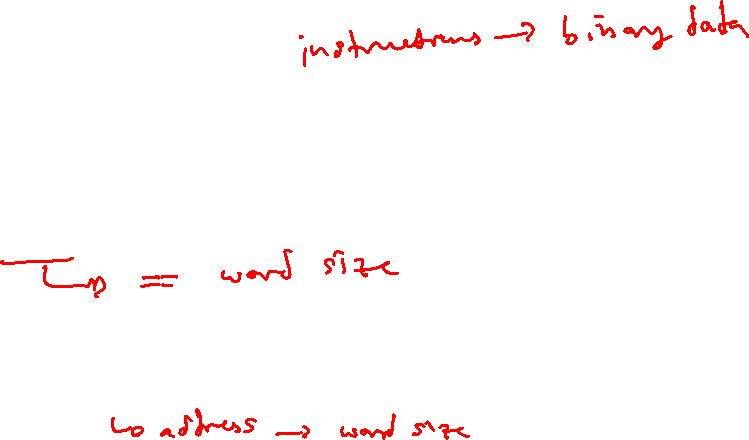 instructions → binary data
= word size
↳ address → word size